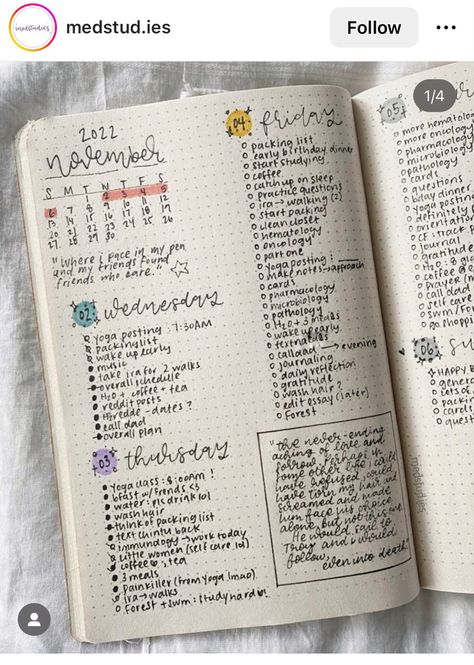 medstud.ies
Follow
1/4
2022
november
S M T W T F S
1 2 3 4 5
6 7 8 9 10 11 12
13 14 15 16 17 18 19
20 21 22 23 24 25 26
27 28 29 30
and my friends found
friends who care."
02 wednesday
yoga posting : 7:30AM
packing list
wake up early
music
take ira for 2 walks
overall schedule
H2O + coffee + tea
reddit posts
dates?
call dad
overall plan
03 thursday
yoga class : 8:00AM!
bfast w/ friends <3
wash hair
think of packing list
text back
immunology → work today
little women (self care lol)
coffee tea
3 meals
painkiller (from yoga lmao)
ira → walks
forest + swm : study hard
04 friday
packing list
early birthday dinner
start studying
coffee
catch up on sleep
practice questions
ira → walking (2)
start packing
clean closet
hematology
oncology
part one
yoga posting :
make notes → approach
cards
pharmacology
microbiology
pathology
H2O + 3 meals
wake up early
text
call dad → evening
journaling
daily reflection
gratitude
wash hair?
edit essay (later)
forest
"the never-ending
aching of love and
sorrow. perhaps in
some other life i could
have refused, could
have torn my hair and
screamed and made
him face his choice
alone. but not in this one.
He would sail to
Troy and i would
follow,
even into death."
05
more hematolo
more oncology
pharmacology
microbiology
pathology
cards
questions
bday dinner
yoga postin
definitely
orientatio
CF : track p
journal
gratitud
H2O : 8 gl
coffee
prayer (m
call dad
self care
swm/for
go shopp
06 su
HAPPY B
gener
lots of
packin
care
quest
medstudies